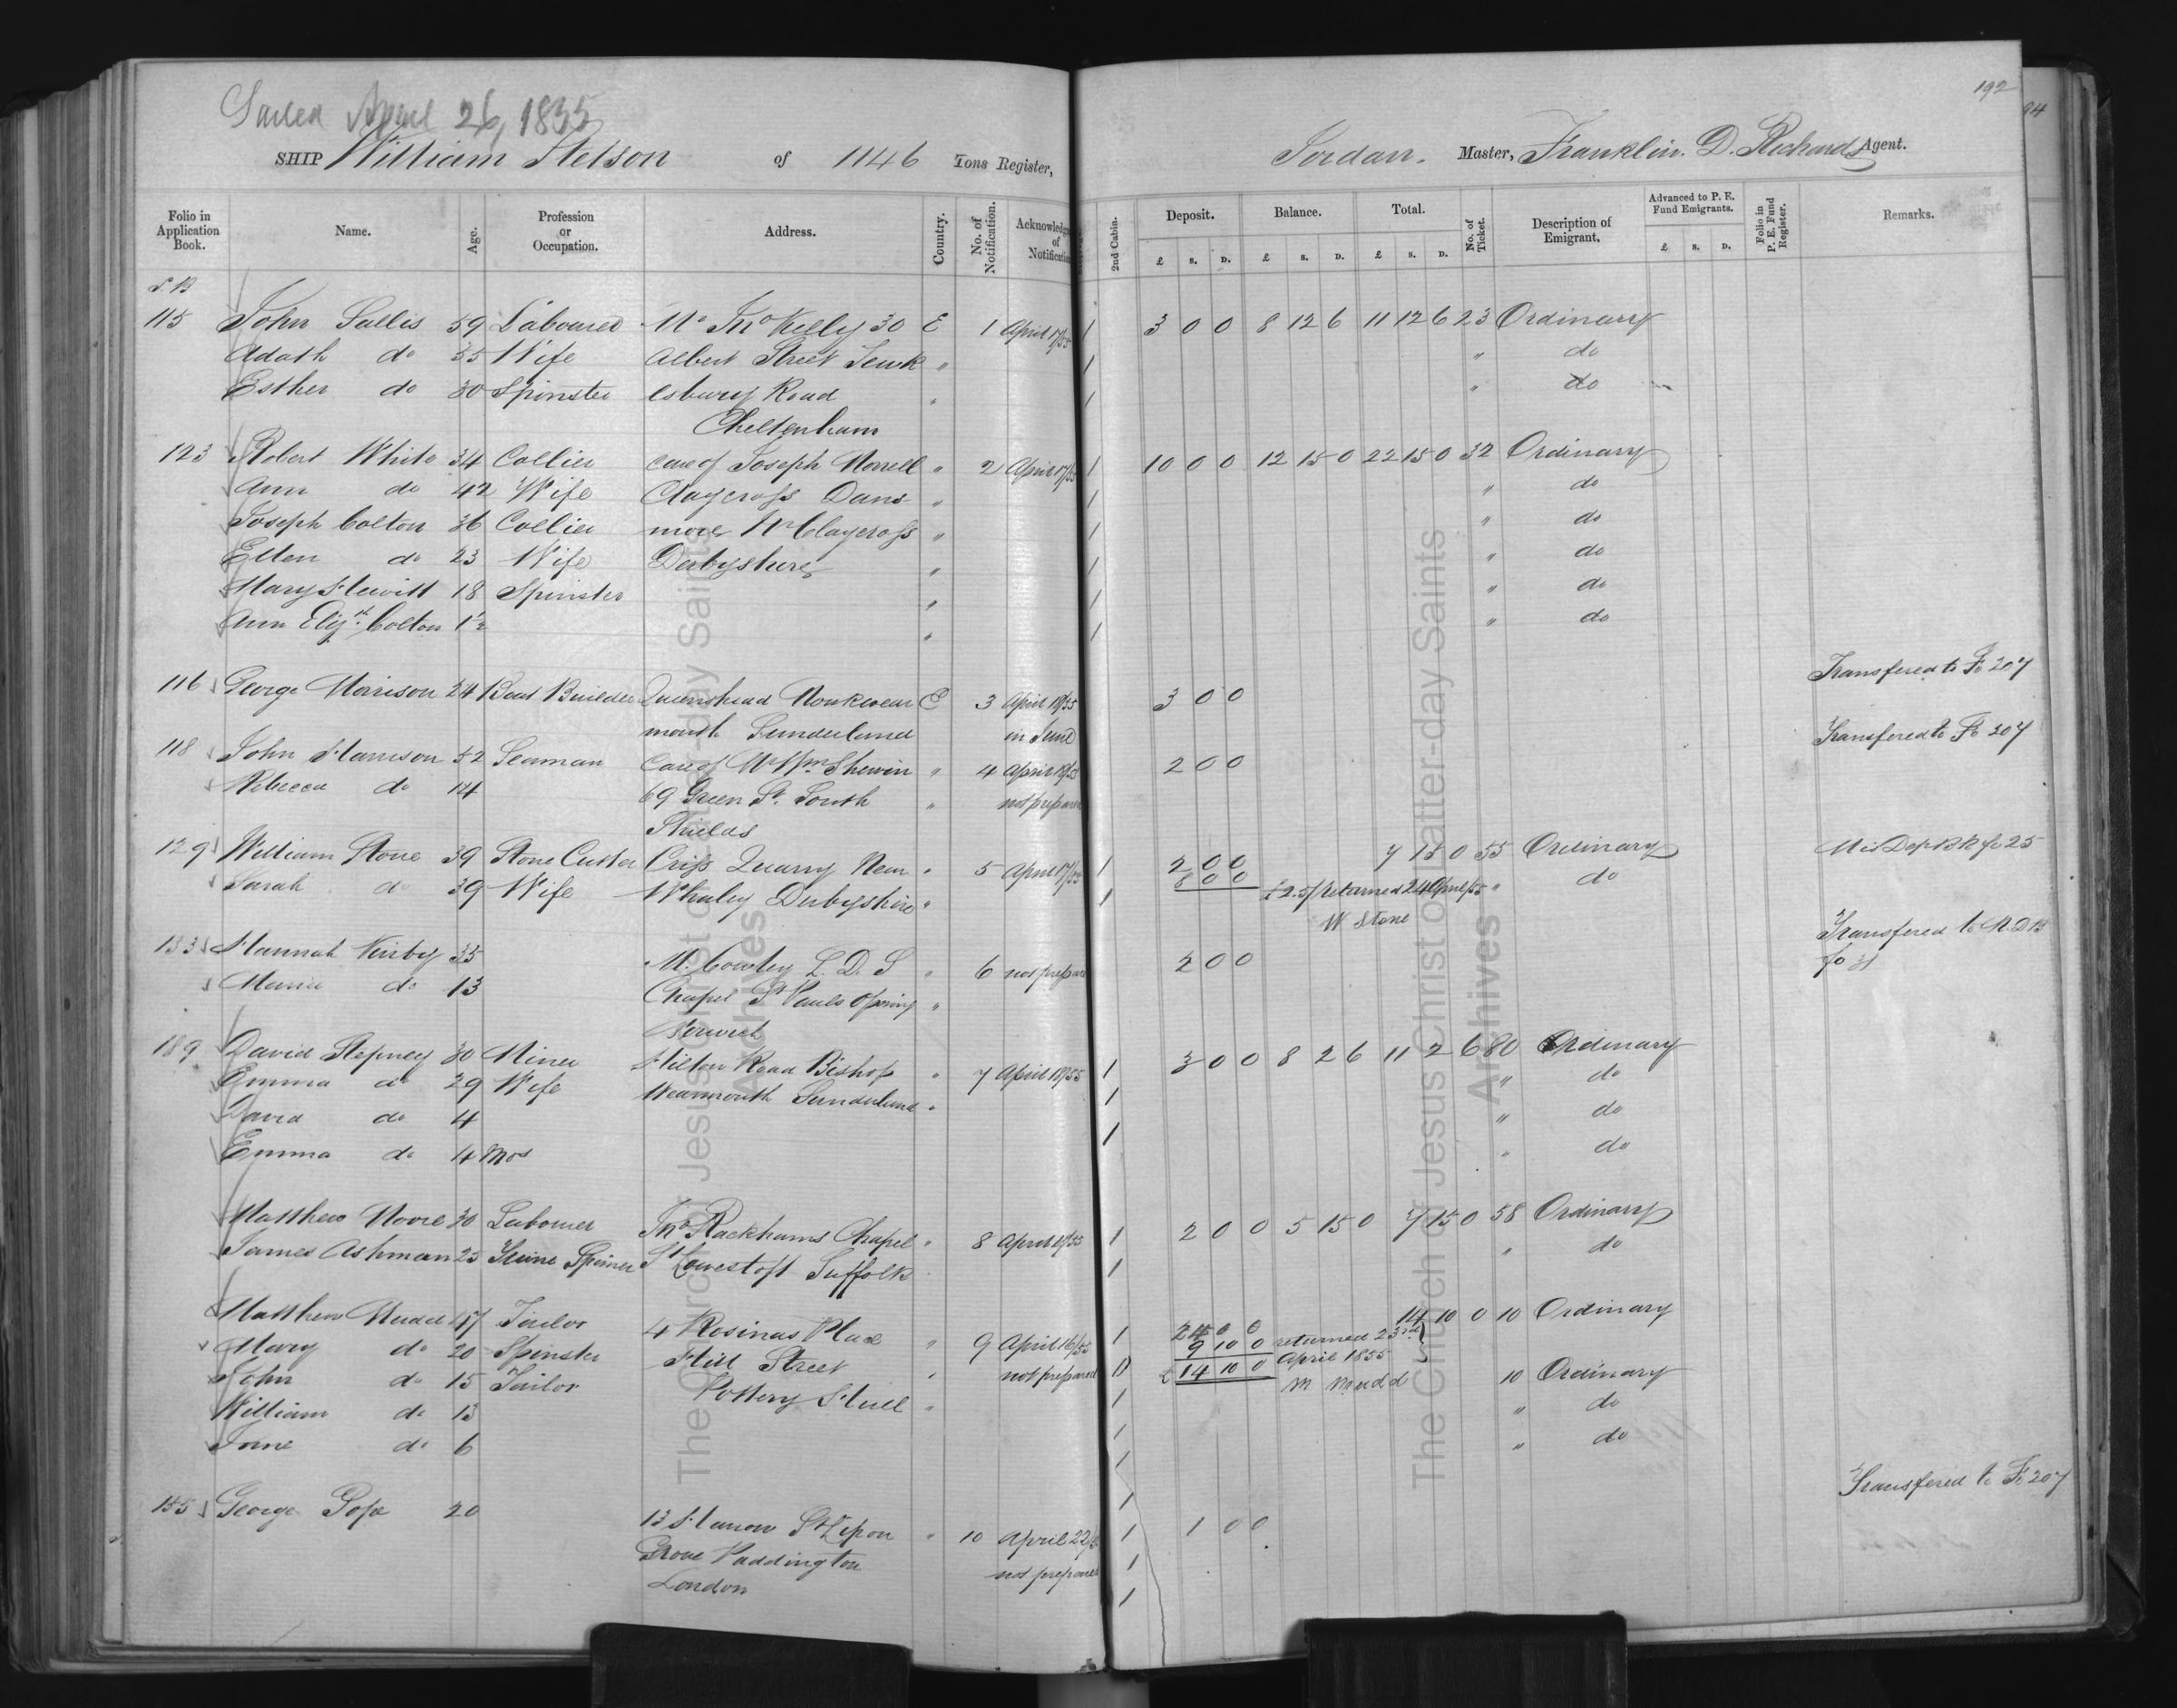 192
94
Sailed April 26, 1855
SHIP William Stetson of 1146 Tons Register, Jordan. Master, Franklin. D. Richards Agent.
Folio in Application Book. Name. Age. Profession or Occupation. Address. Country. No. of Notification. Acknowledgm of Notification 2nd Cabin. Deposit. Balance. Total. No. of Ticket. Description of Emigrant. Advanced to P. E. Fund Emigrants. Folio in P. E. Fund Register. Remarks.
£ s. D. £ s. D. £ s. D. £ s. D.
115 John Sallis 59 Labourer Mr Jno Kelly 30 E 1 April 17/55 1 3 0 0 8 12 6 11 12 6 23 Ordinary
Adath do 55 Wife Albert Street Tewk " " do
Esther do 30 Spinster esbury Road " " do
Cheltenham
123 Robert White 34 Collier care of Joseph Worrell " 2 April 17/55 1 10 0 0 12 15 0 22 15 0 32 Ordinary
Ann do 42 Wife Claycross Dans " " do
Joseph Colton 36 Collier more Nr Claycross " " do
Ellen do 23 Wife Derbyshire " " do
Mary Hewitt 18 Spinster " " do
Ann Elizth Colton 1½ " " do
116 George Morrison 24 Boat Builder Queenshead Monkwear E 3 April 18/55 3 0 0 Transfered to Fo 207
mouth Sunderland in June
118 John Harrison 52 Seaman Care of Mr Wm Shewin " 4 April 18/55 2 0 0 Transfered to Fo 207
Rebecca do 14 69 Green St. South " not prepared
Shields
129 William Stone 39 Stone Cutter Criss Quarry Near " 5 April 17/55 1 2 0 0 7 15 0 55 Ordinary Mis Dep Bk fo 25
Sarah do 39 Wife Whaley Derbyshire " 1 8 0 0 £2.5/ returned 24 April/55 " do
W Stone
133 Hannah Kirby 35 M. Cowley L. D. S " 6 not prepared 2 0 0 Transfered to M. D B
Maria do 13 Chapel St Pauls Opening " fo 31
Norwich
189 David Stepney 30 Miner Hilton Road Bishop " 7 April 18/55 1 3 0 0 8 2 6 11 2 6 80 Ordinary
Emma do 29 Wife Wearmouth Sunderland " 1 " do
David do 4 1 " do
Emma do 4 mos " do
Matthew Moore 30 Labourer Jno Rackhams Chapel " 8 April 18/55 1 2 0 0 5 15 0 7 15 0 58 Ordinary
James Ashman 25 Twine Spinner St Lowestoft Suffolk 1 " do
Matthew Mudd 47 Tailor 4 Rosinas Place " 9 April 16/55 1 24 0 0 14 10 0 10 Ordinary
Mary do 20 Spinster Hill Street not prepared 9 10 0 returned 23rd
John do 15 Tailor Pottery Hull £ 14 10 0 April 1855 10 Ordinary
William do 13 " M Mudd " do
Jane do 6 " do
155 George Pope 20 13 Hanon St Lisson " 10 April 22/55 1 1 0 0 Transfered to Fo 207
Grove Paddington not prepared
London
The Church of Jesus Christ of Latter-day Saints
Archives
The Church of Jesus Christ of Latter-day Saints
Archives